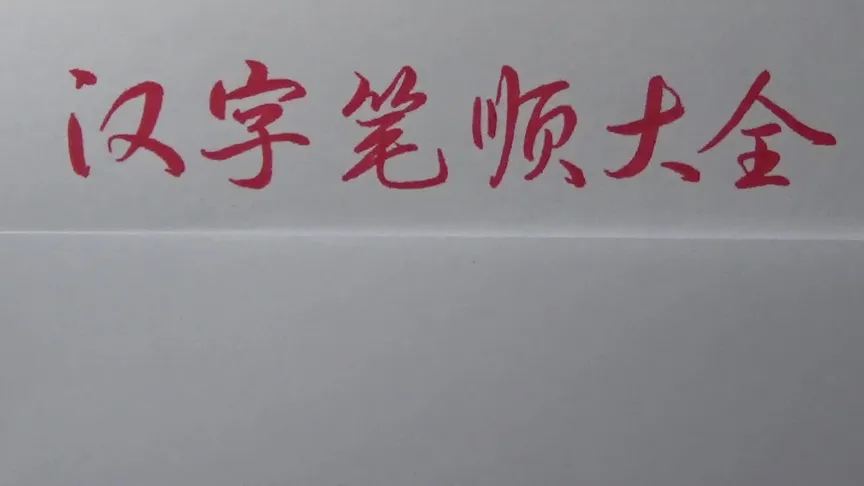 汉字笔顺大全